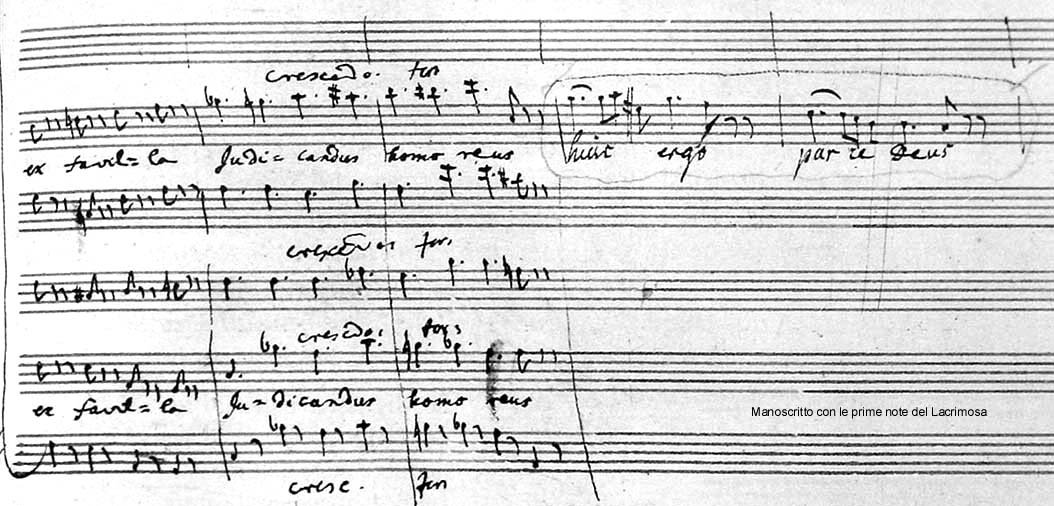 crescdo. for
ex favil=la Judi=candus homo reus huic ergo parce Deus
for:
ex favil=la Ju=dicandus homo reus
Manoscritto con le prime note del Lacrimosa
cresc. for